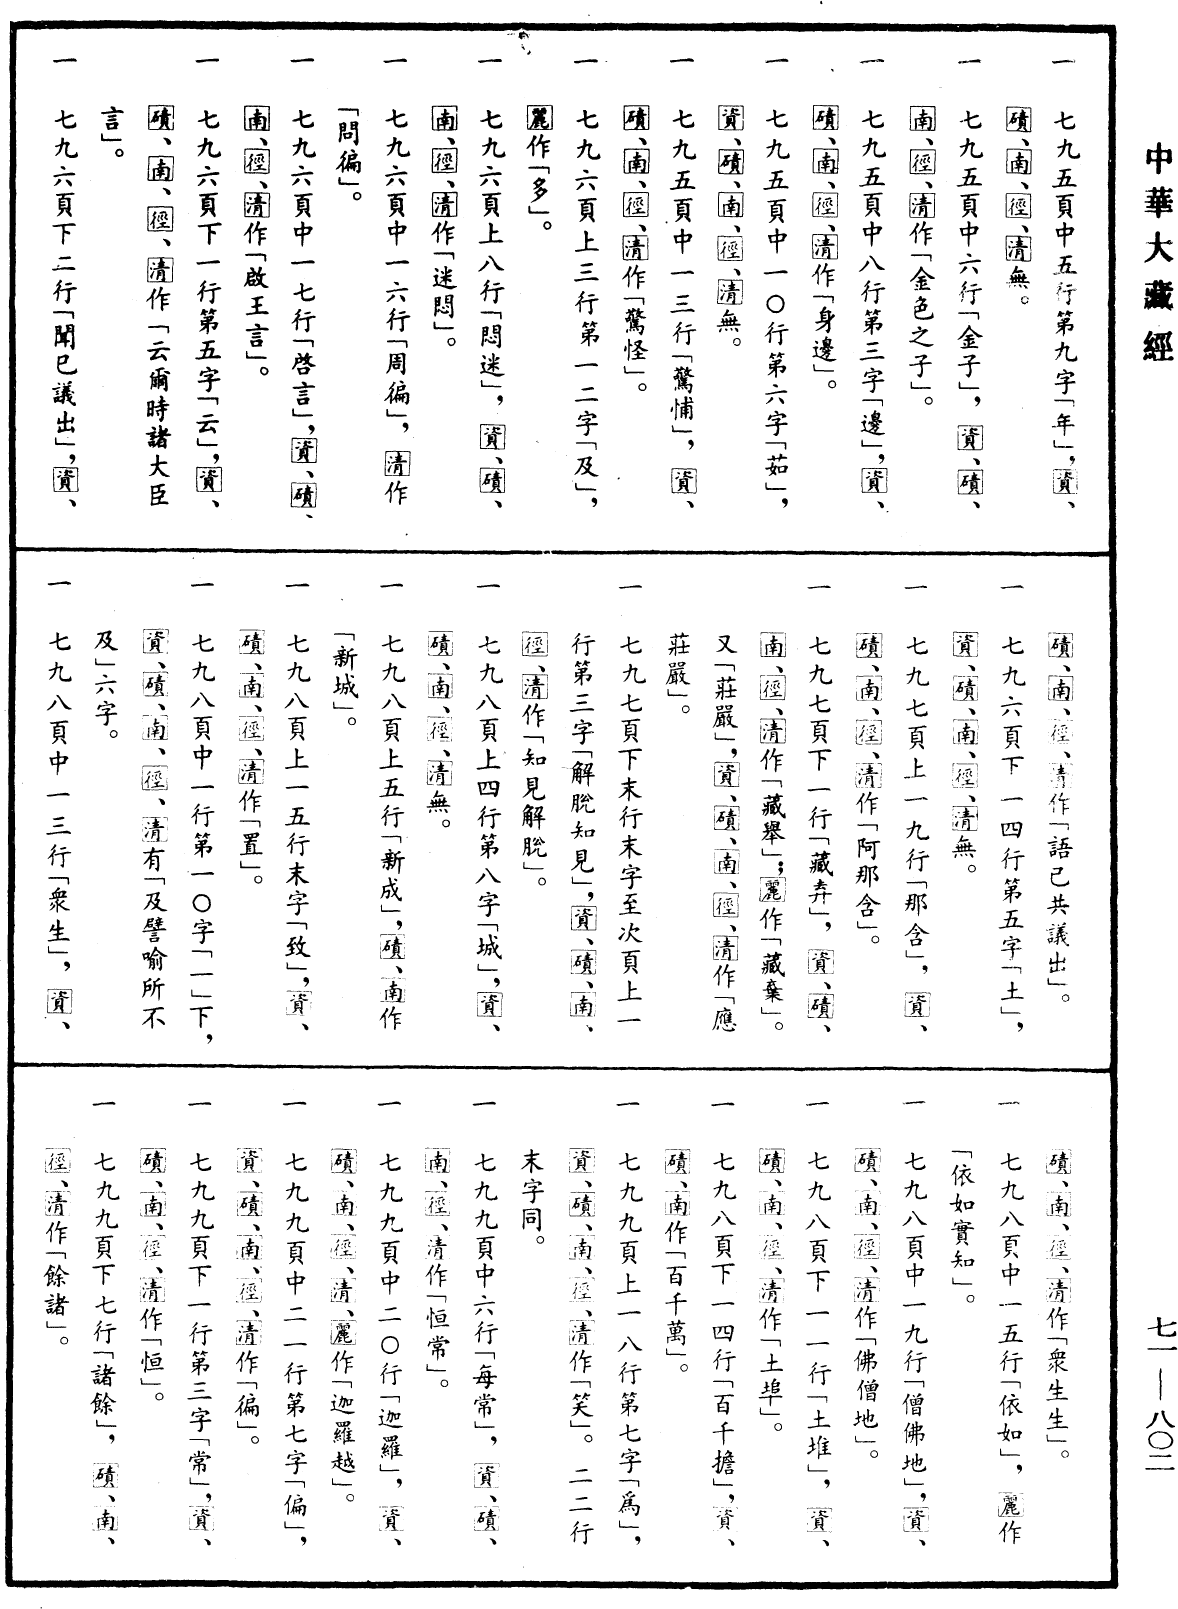 中華大藏經
七一—八〇二
一　七九五頁中五行第九字「年」，資、
磧、南、徑、清無。
一　七九五頁中六行「金子」，資、磧、
南、徑、清作「金色之子」。
一　七九五頁中八行第三字「邊」，資、
磧、南、徑、清作「身邊」。
一　七九五頁中一〇行第六字「茹」，
資、磧、南、徑、清無。
一　七九五頁中一三行「驚怖」，資、
磧、南、徑、清作「驚怪」。
一　七九六頁上三行第一二字「及」，
麗作「多」。
一　七九六頁上八行「悶迷」，資、磧、
南、徑、清作「迷悶」。
一　七九六頁中一六行「周徧」，清作
「問徧」。
一　七九六頁中一七行「啓言」，資、磧、
南、徑、清作「啟王言」。
一　七九六頁下一行第五字「云」，資、
磧、南、徑、清作「云爾時諸大臣
言」。
一　七九六頁下二行「聞已議出」，資、
磧、南、徑、清作「語已共議出」。
一　七九六頁下一四行第五字「土」，
資、磧、南、徑、清無。
一　七九七頁上一九行「那含」，資、
磧、南、徑、清作「阿那含」。
一　七九七頁下一行「藏弆」，資、磧、
南、徑、清作「藏舉」；麗作「藏棄」。
又「莊嚴」，資、磧、南、徑、清作「應
莊嚴」。
一　七九七頁下末行末字至次頁上一
行第三字「解脫知見」，資、磧、南、
徑、清作「知見解脫」。
一　七九八頁上四行第八字「城」，資、
磧、南、徑、清無。
一　七九八頁上五行「新成」，磧、南作
「新城」。
一　七九八頁上一五行末字「致」，資、
磧、南、徑、清作「置」。
一　七九八頁中一行第一〇字「一」下，
資、磧、南、徑、清有「及譬喻所不
及」六字。
一　七九八頁中一三行「衆生」，資、
磧、南、徑、清作「衆生生」。
一　七九八頁中一五行「依如」，麗作
「依如實知」。
一　七九八頁中一九行「僧佛地」，資、
磧、南、徑、清作「佛僧地」。
一　七九八頁下一一行「土堆」，資、
磧、南、徑、清作「土埠」。
一　七九八頁下一四行「百千擔」，資、
磧、南作「百千萬」。
一　七九九頁上一八行第七字「爲」，
資、磧、南、徑、清作「笑」。二二行
末字同。
一　七九九頁中六行「每常」，資、磧、
南、徑、清作「恒常」。
一　七九九頁中二〇行「迦羅」，資、
磧、南、徑、清、麗作「迦羅越」。
一　七九九頁中二一行第七字「偏」，
資、磧、南、徑、清作「徧」。
一　七九九頁下一行第三字「常」，資、
磧、南、徑、清作「恒」。
一　七九九頁下七行「諸餘」，磧、南、
徑、清作「餘諸」。